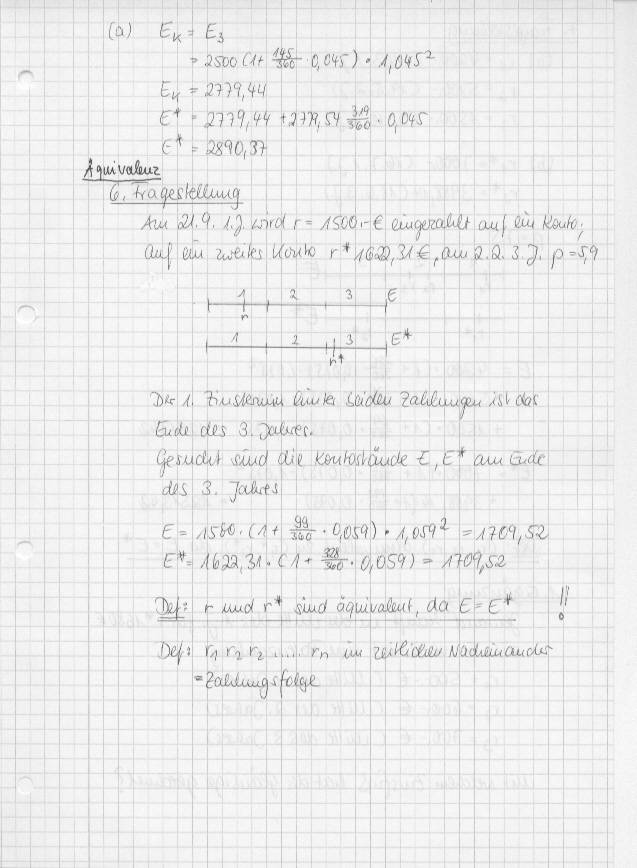 (a) E_K = E_3
= 2500 (1 + 145/360 · 0,045) · 1,045²
E_K = 2779,44
E* = 2779,44 + 2779,54 319/360 · 0,045
E* = 2890,37
Äquivalenz
6. Fragestellung
Am 21.9. 1.J. wird r = 1500.- € eingezahlt auf ein Konto;
auf ein zweites Konto r* 1622,31 €, am 2.2. 3.J. p = 5,9
1 2 3 E
r
1 2 3 E*
r*
Der 1. Zinstermin hinter beiden Zahlungen ist das
Ende des 3. Jahres.
Gesucht sind die Kontostände E, E* am Ende
des 3. Jahres
E = 1500 · (1 + 99/360 · 0,059) · 1,059² = 1709,52
E* = 1622,31 · (1 + 328/360 · 0,059) = 1709,52
Def: r und r* sind äquivalent, da E = E* !!
Def: r1 r2 r2 ..... rn im zeitlichen Nacheinander
= Zahlungsfolge